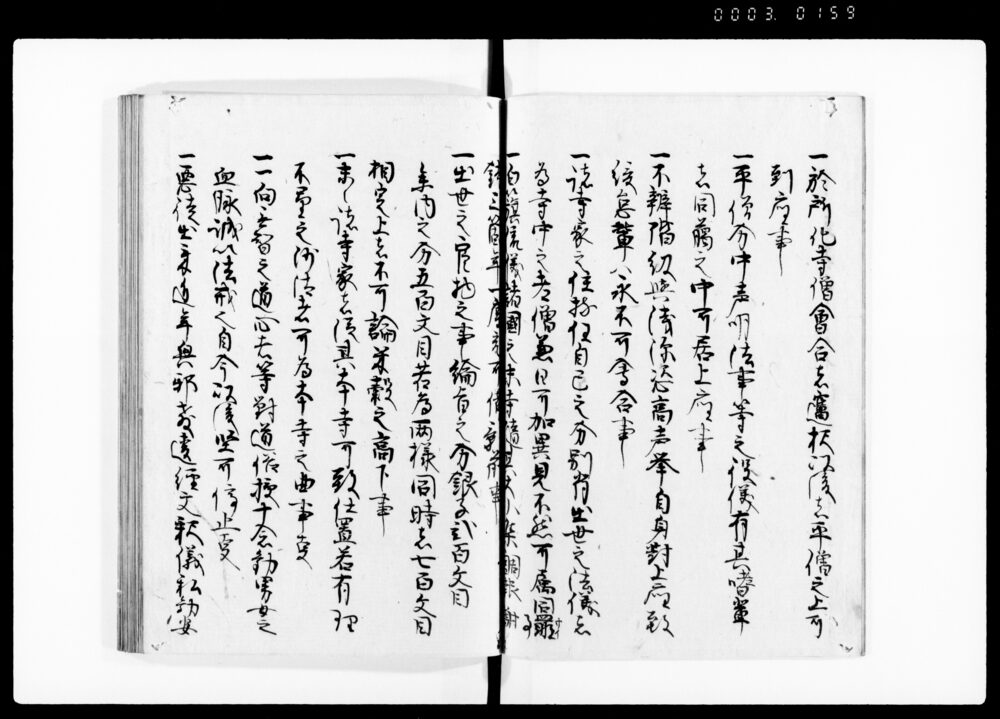 0003.0159
一於所化寺僧會合者臘扙以後者平僧之上可
到座事
一平僧分中声明法事等之役儀有其嗜輩
者同﨟之中可居上座事
一不辨階級與浅深恣高声举自身對上座致
緩怠輩八永不可會合事
一諸寺家之住持任自己之分別背出世之法儀者
為寺中之老僧兼日可加異見不然可属同罪事
一白籏流儀諸國之末寺
一出世之官物之事綸旨之分銀子弐百文目
参内之分五百文目若為両様同時者七百文目
相定上者不可論米穀之高下事
一末之諸寺家者従其本寺可致仕置若有理
不尽之沙汰者可為本寺之曲事事
一一向無智之道心者等對道俗授十念勧男女之
血脉誠以法賊也自今以後堅可停止事
一悪徒出来近年興邪教違經文釈儀私勧安